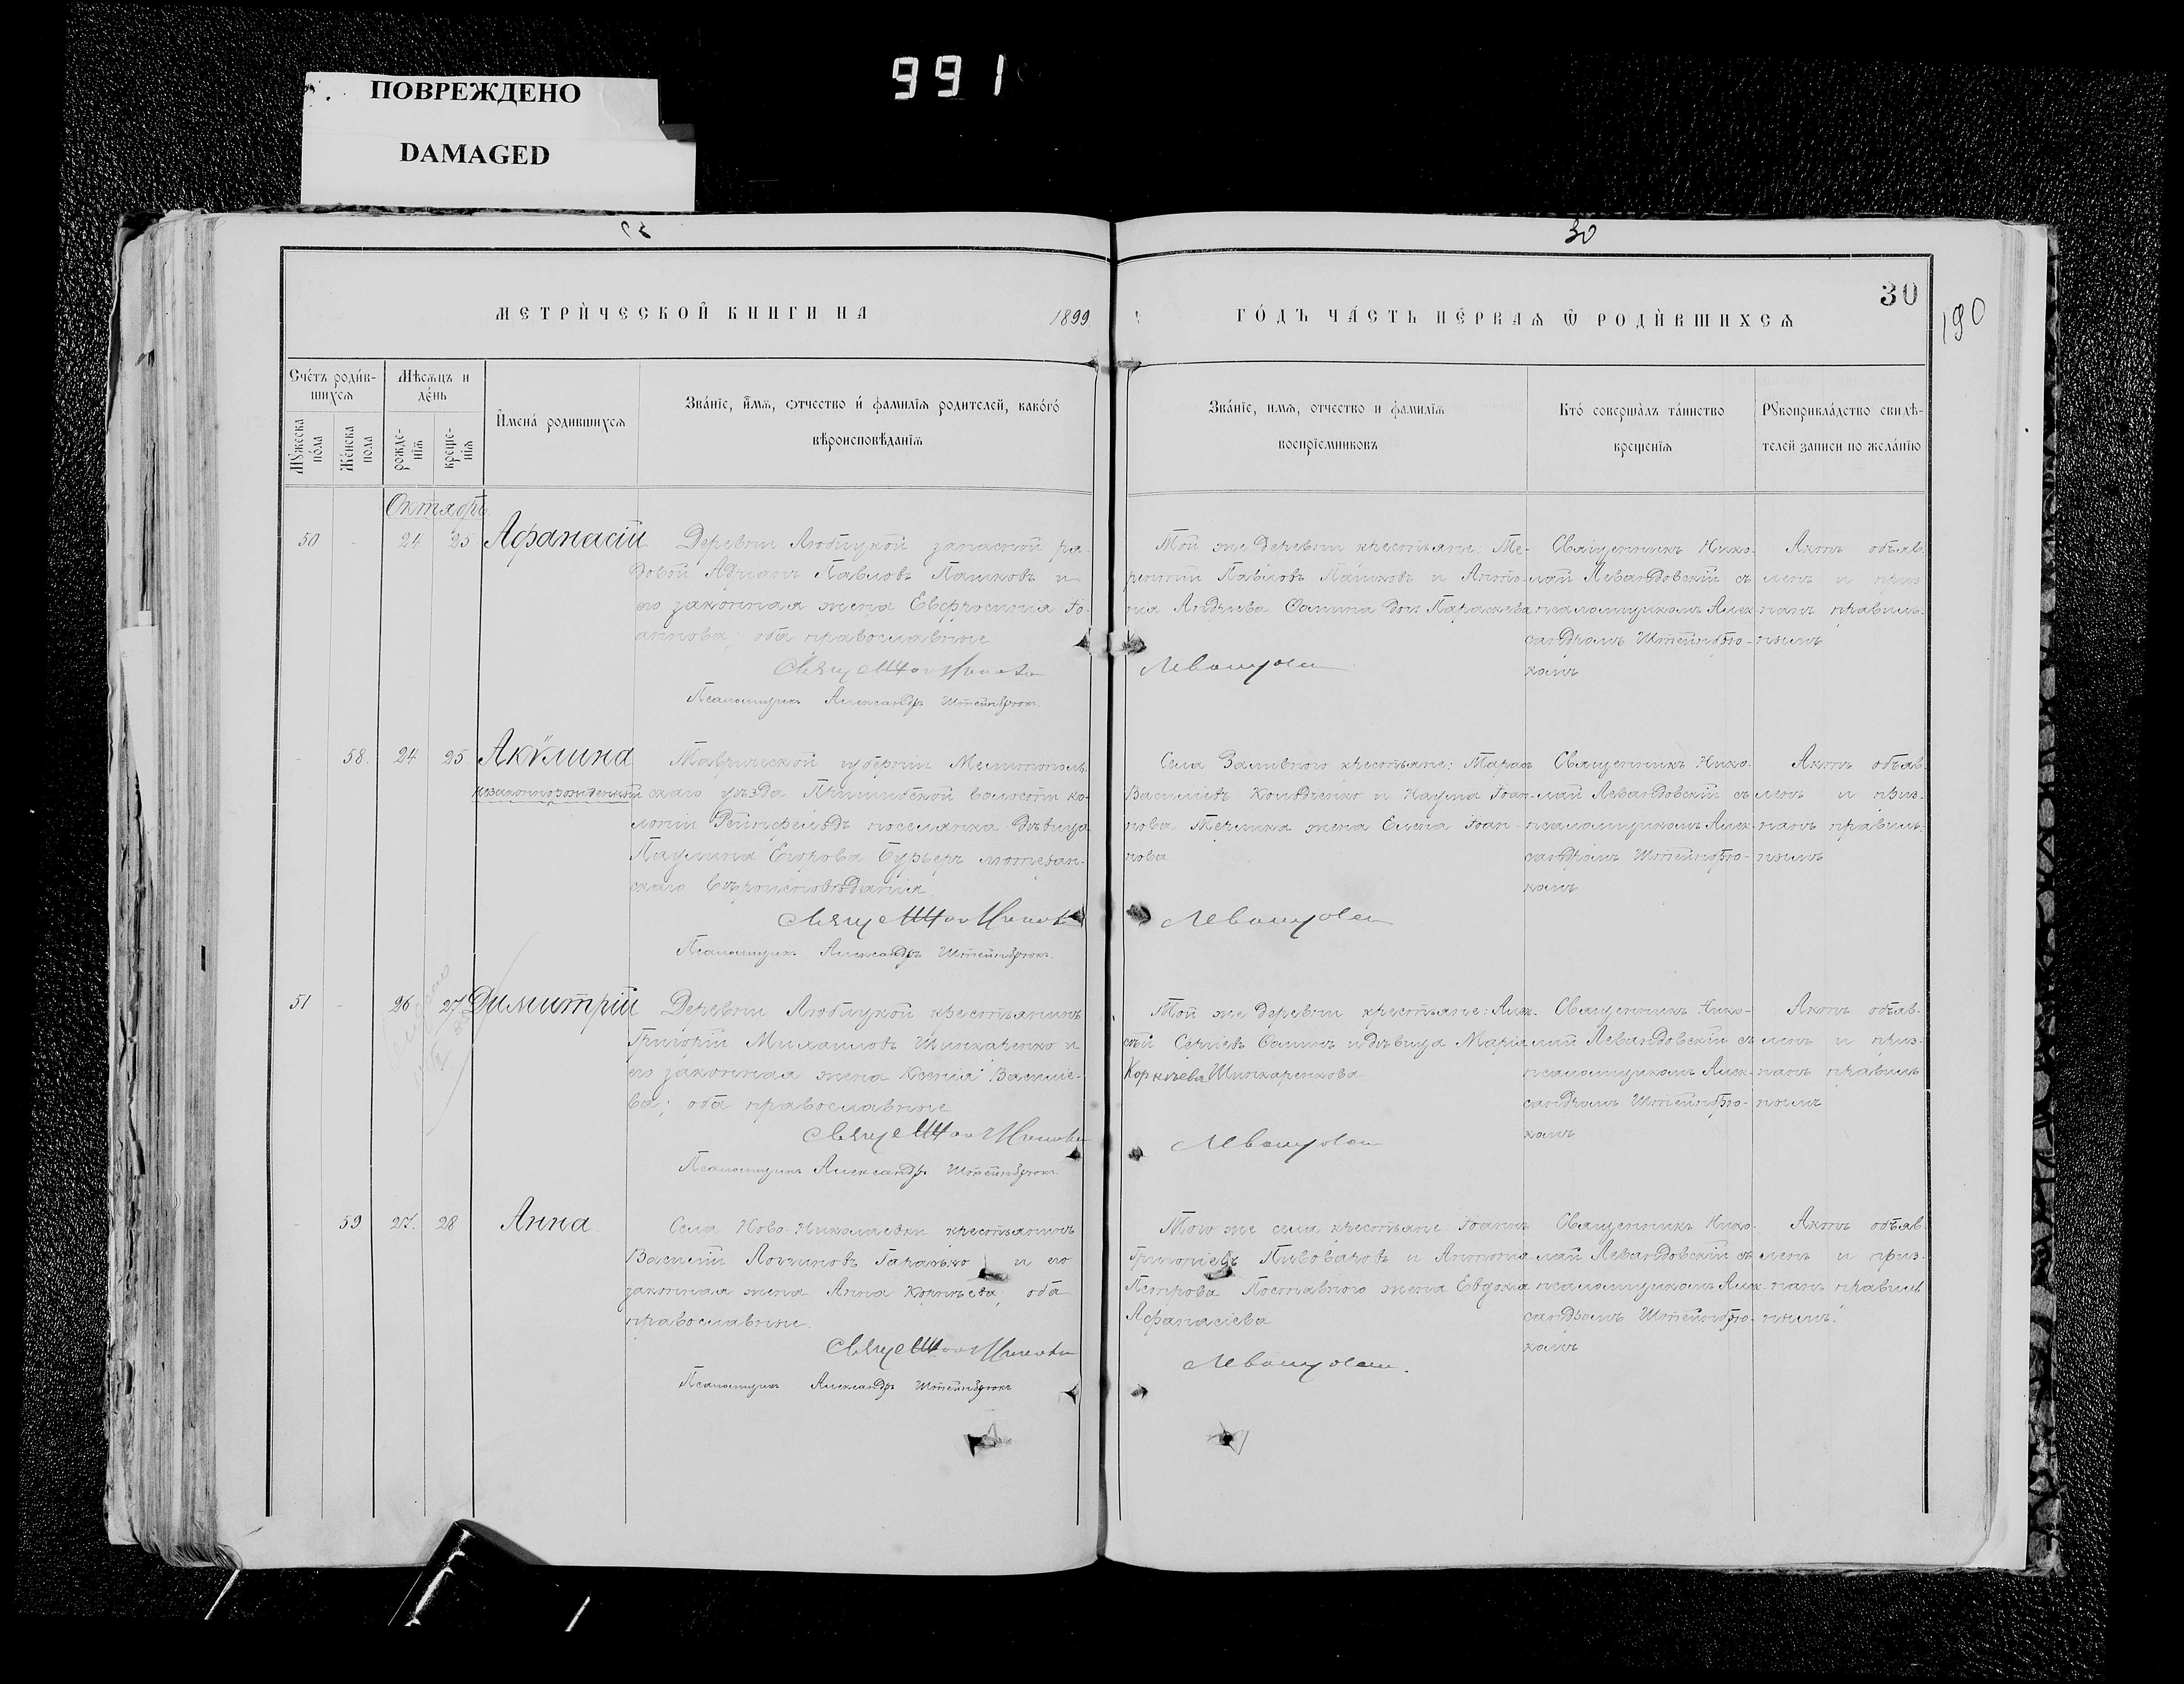 991
ПОВРЕЖДЕНО
DAMAGED
30
30
190
МЕТРИ́ЧЕСКОЙ КНИГИ НА 1899 ГО́ДЪ ЧА́СТЬ ПЕ́РВАѦ Ѡ РОДИ́ВШИХСѦ
Сче́тъ роди́в-
шихсѧ
Мѣсѧцъ и
де́нь
Мꙋжеска по́ла
Же́нска пола
рожде-
нїѧ
креще-
нїѧ
И҆мена́ родившихсѧ
Зва́нїе, и҆́мѧ, ѻтчество и҆ фамилїѧ родителей, како́гѡ
вѣроисповѣ́данїѧ
Зва́нїе, имѧ, отчество и фамилїѧ
воспрїемниковъ
Кто́ соверша́лъ та́инство
крещенїѧ
Рꙋкоприкла́дство свидѣ-
телей записи по жела́нїю
Октябрь
50 - 24 25 Афанасій
Деревни Любицкой запасный ря-
довой Адріанъ Павловъ Пашковъ и
его законная жена Евфросинія Іо-
аннова; оба православные
Псаломщикъ Александръ Штейнбрюкъ.
Той же деревни крестьяне: Те-
рентій Павловъ Пашковъ и Анто-
нія Андреева Санина дочь Параскева
Священникъ Нико-
лай Левандовскій съ
псаломщикомъ Алек-
сандромъ Штейнбрю-
комъ
Актъ объяв-
ленъ и приз-
нанъ правиль-
нымъ
- 58. 24 25 Акѵлина
незаконнорожденный
Таврической губерніи Мелитополь-
скаго уѣзда Пришибской волости ко-
лоніи Рейнфельдъ поселянка дѣвица
Паулина Егорова Бурьеръ лютеран-
скаго вѣроисповѣданія
Псаломщикъ Александръ Штейнбрюкъ.
Села Заливного крестьяне: Тарасъ
Василіевъ Кондченко и Наума Іоан-
нова Течника жена Елена Іоан-
нова
Священникъ Нико-
лай Левандовскій съ
псаломщикомъ Алек-
сандромъ Штейнбрю-
комъ
Актъ объяв-
ленъ и приз-
нанъ правиль-
нымъ
51 - 26 27 Димитрій
Деревни Любицкой крестьянинъ
Григорій Михаиловъ Шинкаренко и
его законная жена Ксенія Василіе-
ва; оба православные
Псаломщикъ Александръ Штейнбрюкъ.
Той же деревни крестьяне: Алек-
сѣй Сергіевъ Санинъ и дѣвица Марія
Корніева Шинкаренкова
Священникъ Нико-
лай Левандовскій съ
псаломщикомъ Алек-
сандромъ Штейнбрю-
комъ
Актъ объяв-
ленъ и приз-
нанъ правиль
нымъ
- 59 27. 28 Анна
Села Ново-Николаевки крестьянинъ
Василій Логгиновъ Гаранько и его
законная жена Анна Корніева, оба
православные.
Псаломщикъ Александръ Штейнбрюкъ
Того же села крестьяне Іоаннъ
Григоріевъ Пивоваровъ и Антонія
Петрова Поставного жена Евдокія
Афанасіева
Священникъ Нико-
лай Левандовскій съ
псаломщикомъ Алек-
сандромъ Штейнбрю-
комъ
Актъ объяв
ленъ и приз-
нанъ правиль
нымъ.